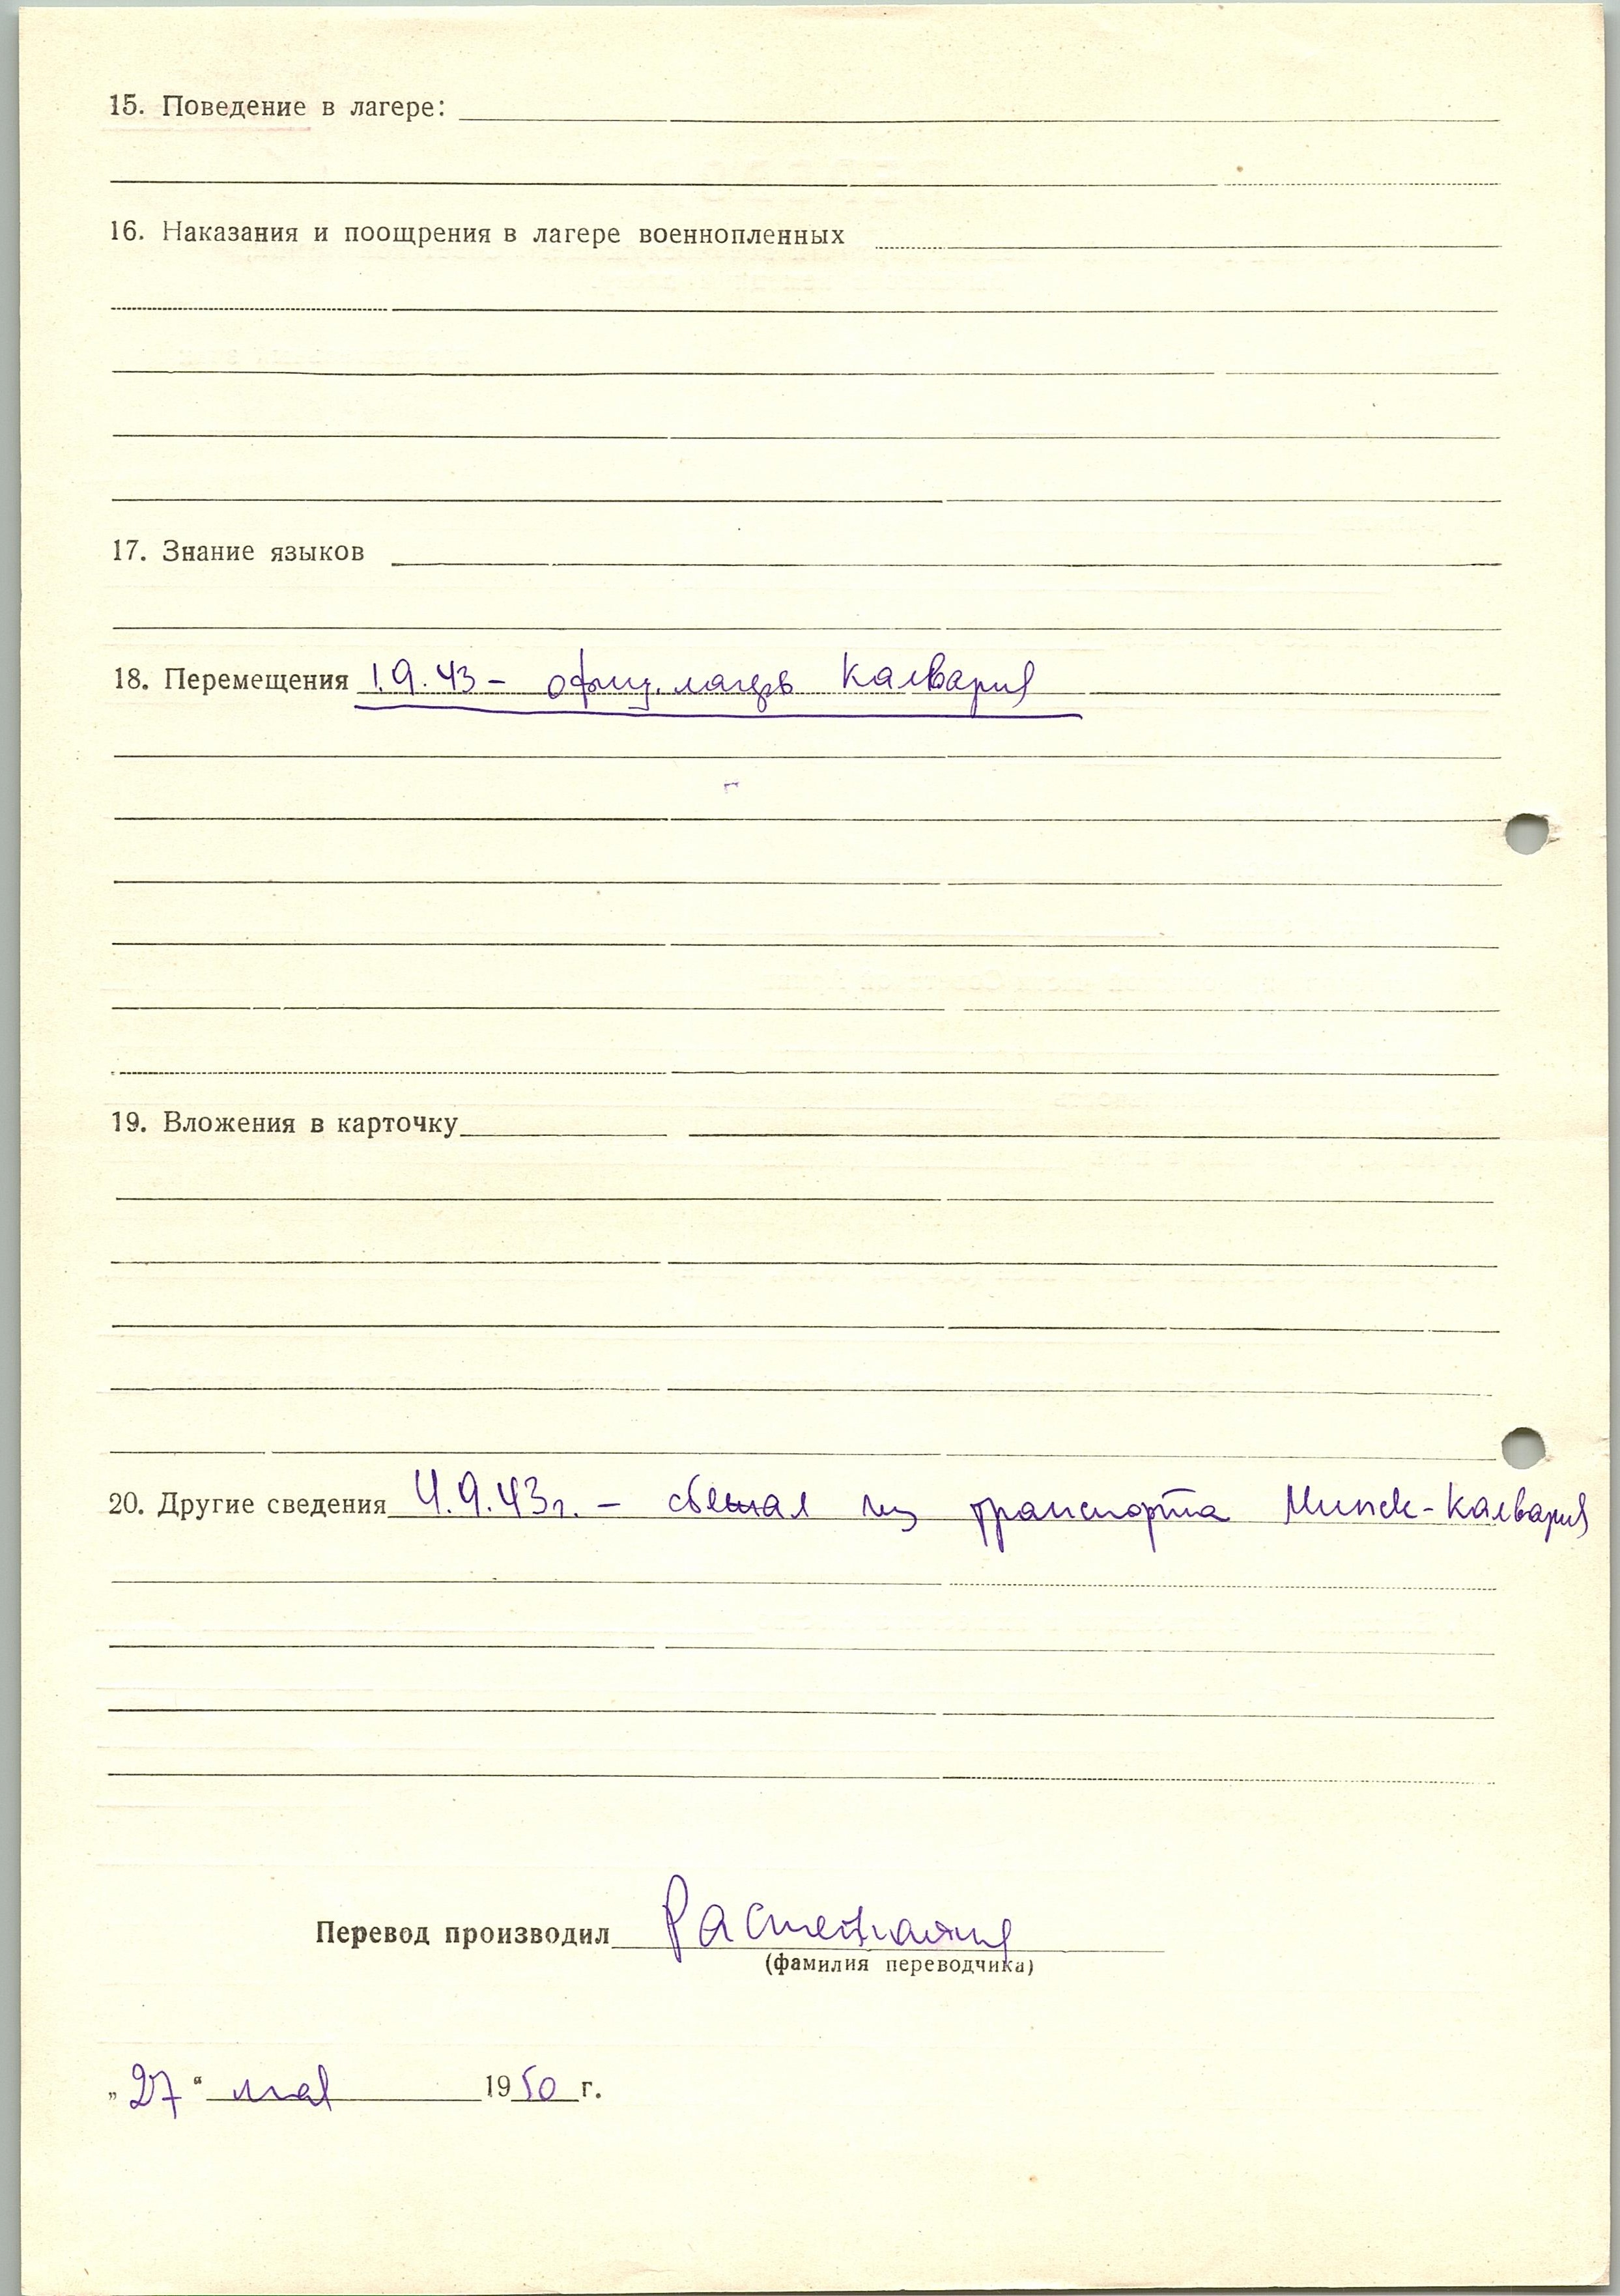 15. Поведение в лагере:
16. Наказания и поощрения в лагере военнопленных
17. Знание языков
18. Перемещения 1.9.43 - офиц. лагерь Калвария
19. Вложения в карточку
20. Другие сведения 4.9.43г. - сбежал из транспорта Минск-Калвария
Перевод производил
(фамилия переводчика)
„27“ мая 1950 г.